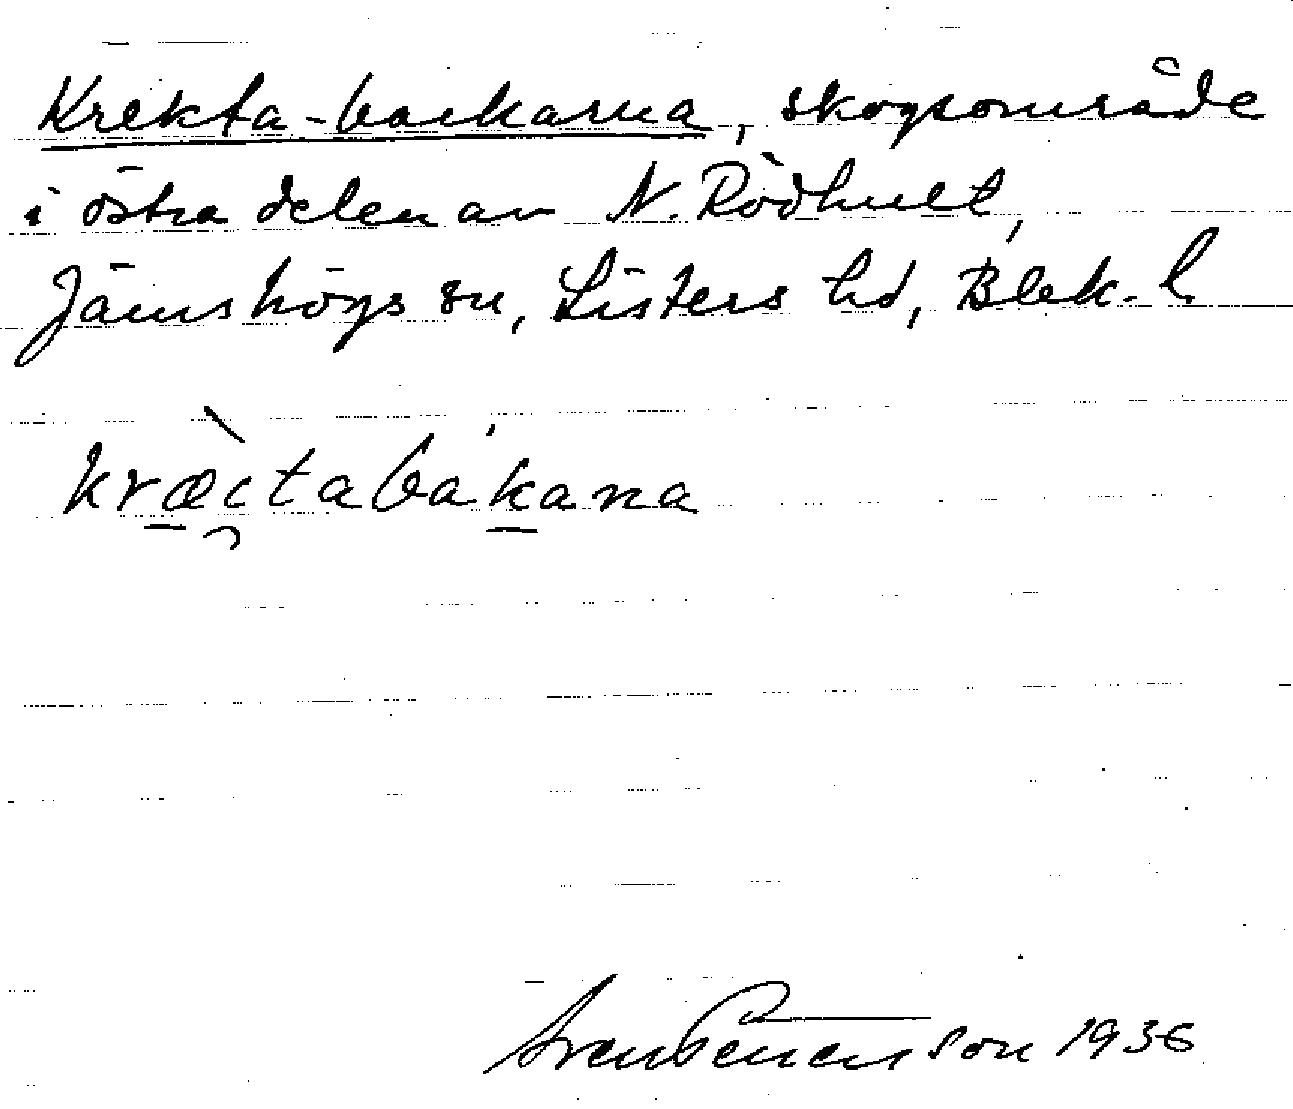 Krekta-backarna, skogsområde
i östra delen av N. Rödhult,
Jämshögs sn, Listers hd, Blek. l.
kræ̀ctabákana
Sven Benson 1936